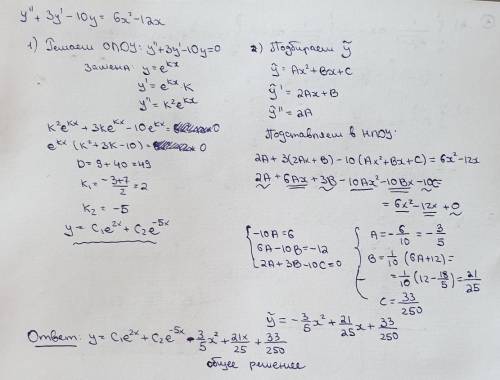 y'' + 3y' - 10y = 6x² - 12x
1) Решаем ОЛОУ: y'' + 3y' - 10y = 0
Замена: y = e^{kx}
y' = e^{kx} · k
y'' = k²e^{kx}
k²e^{kx} + 3ke^{kx} - 10e^{kx} = 0
e^{kx} (k² + 3k - 10) = 0
D = 9 + 40 = 49
k₁ = (-3+7)/2 = 2
k₂ = -5
y = C₁e^{2x} + C₂e^{-5x}
2) Подбираем ỹ
ỹ = Ax² + Bx + C
ỹ' = 2Ax + B
ỹ'' = 2A
Подставляем в НЛОУ:
2A + 3(2Ax + B) - 10(Ax² + Bx + C) = 6x² - 12x
2A + 6Ax + 3B - 10Ax² - 10Bx - 10C
= 6x² - 12x + 0
{ -10A = 6
6A - 10B = -12
2A + 3B - 10C = 0
{ A = -6/10 = -3/5
B = 1/10 (6A + 12) =
= 1/10 (12 - 18/5) = 21/25
C = 33/250
ỹ = -3/5 x² + 21/25 x + 33/250
Ответ: y = C₁e^{2x} + C₂e^{-5x} - 3/5 x² + 21x/25 + 33/250
общее решение